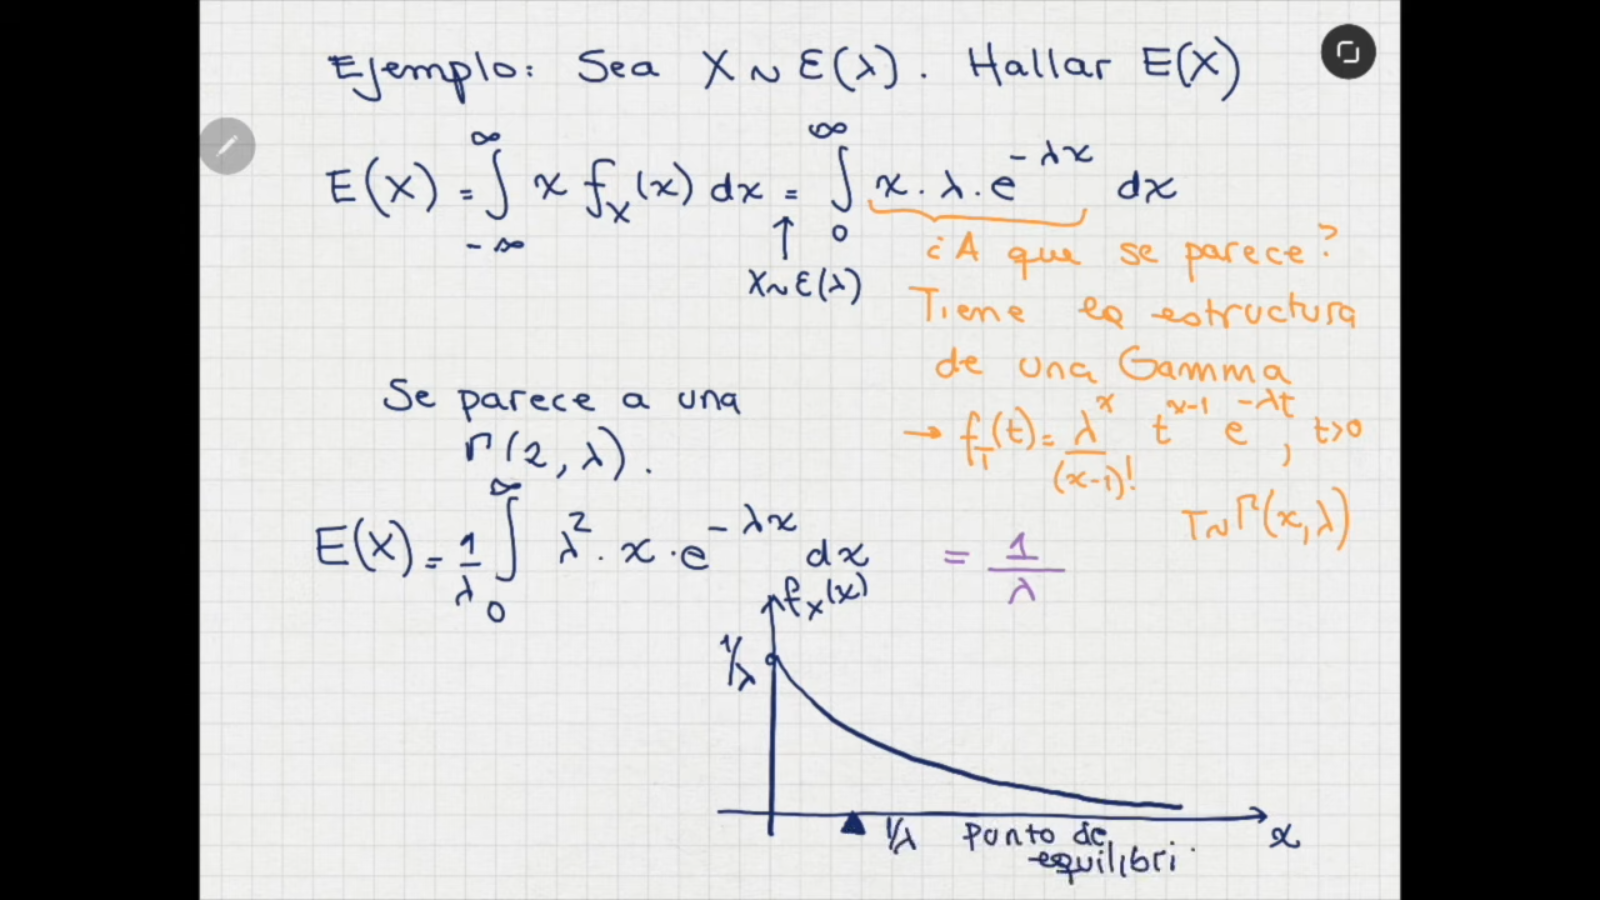 Ejemplo: Sea X ~ ε(λ). Hallar E(X)
E(X) = ∫_{-∞}^{∞} x f_X(x) dx = ∫_0^∞ x · λ · e^{-λx} dx
↑
X ~ ε(λ)
¿A que se parece?
Tiene la estructura
de una Gamma
→ f_T(t) = λ^x / (x-1)! t^{x-1} e^{-λt}, t>0
T ~ Γ(x, λ)
Se parece a una
Γ(2, λ).
E(X) = 1/λ ∫_0^∞ λ² · x · e^{-λx} dx = 1/λ
f_X(x)
1/λ
1/λ punto de
equilibri
x